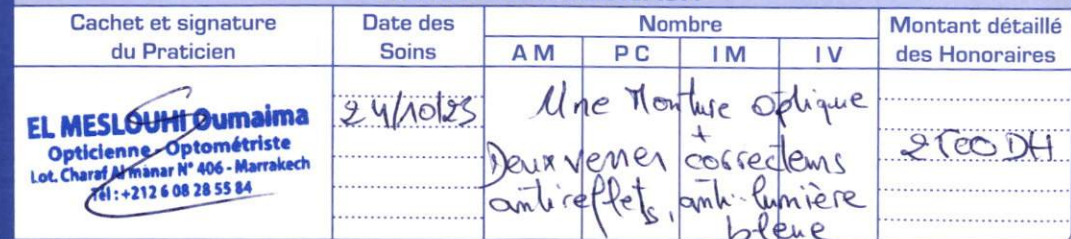 Cachet et signature du Praticien
Date des Soins
Nombre
Montant détaillé des Honoraires
AM PC IM IV
EL MESLOUHI Oumaima
Opticienne-Optométriste
Lot. Charaf Al manar N° 406 - Marrakech
Tél : +212 6 08 28 55 84
24/10/23
Une Monture optique
+
Deux verres correcteurs
antireflets, anti-lumière
bleue
DH